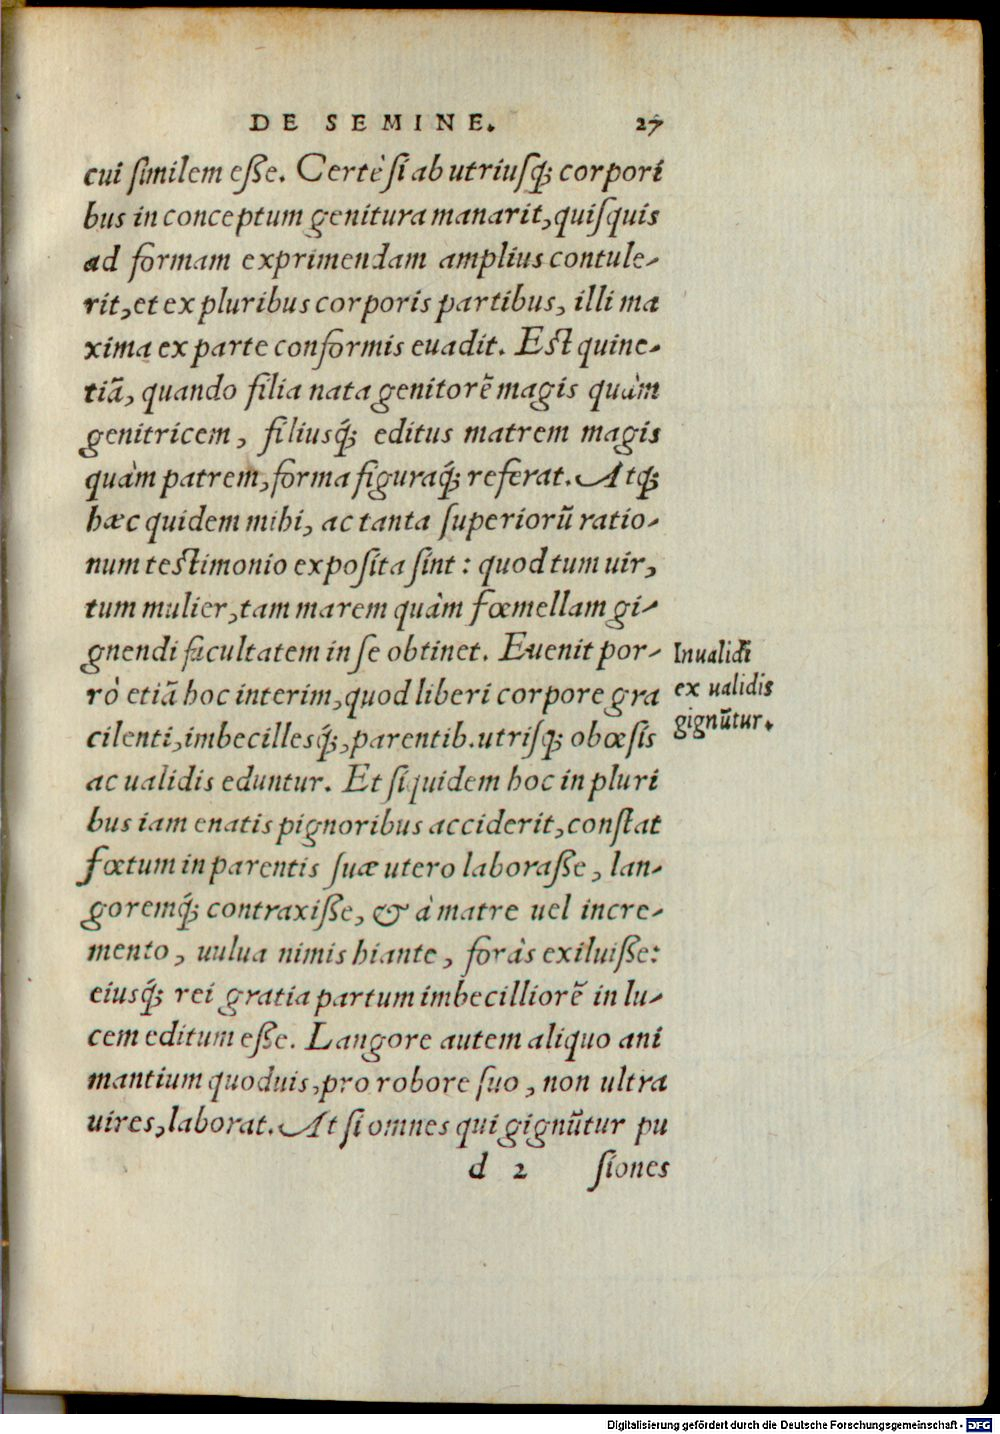 DE SEMINE. 27
cui similem esse. Certè si ab utriusq́; corpori
bus in conceptum genitura manarit, quisquis
ad formam exprimendam amplius contule-
rit, et ex pluribus corporis partibus, illi ma
xima ex parte conformis euadit. Est quine-
tiã, quando filia nata genitorẽ magis quàm
genitricem, filiusq́; editus matrem magis
quàm patrem, forma figuraq́; referat. Atq́;
hæc quidem mihi, ac tanta superiorũ ratio-
num testimonio exposita sint: quod tum uir,
tum mulier, tam marem quàm fœmellam gi-
gnendi facultatem in se obtinet. Euenit por-
rò etiã hoc interim, quod liberi corpore gra
cilenti, imbecillesq́;, parentib. utrisq; obœsis
ac ualidis eduntur. Et siquidem hoc in pluri
bus iam enatis pignoribus acciderit, constat
fœtum in parentis suæ utero laborasse, lan-
goremq́; contraxisse, & à matre uel incre-
mento, uulua nimis hiante, foràs exiluisse:
eiusq́; rei gratia partum imbecilliorẽ in lu-
cem editum esse. Langore autem aliquo ani
mantium quoduis, pro robore suo, non ultra
uires, laborat. At si omnes qui gignũtur pu
d 2 siones
Inualidi
ex ualidis
gignũtur.
Digitalisierung gefördert durch die Deutsche Forschungsgemeinschaft - DFG